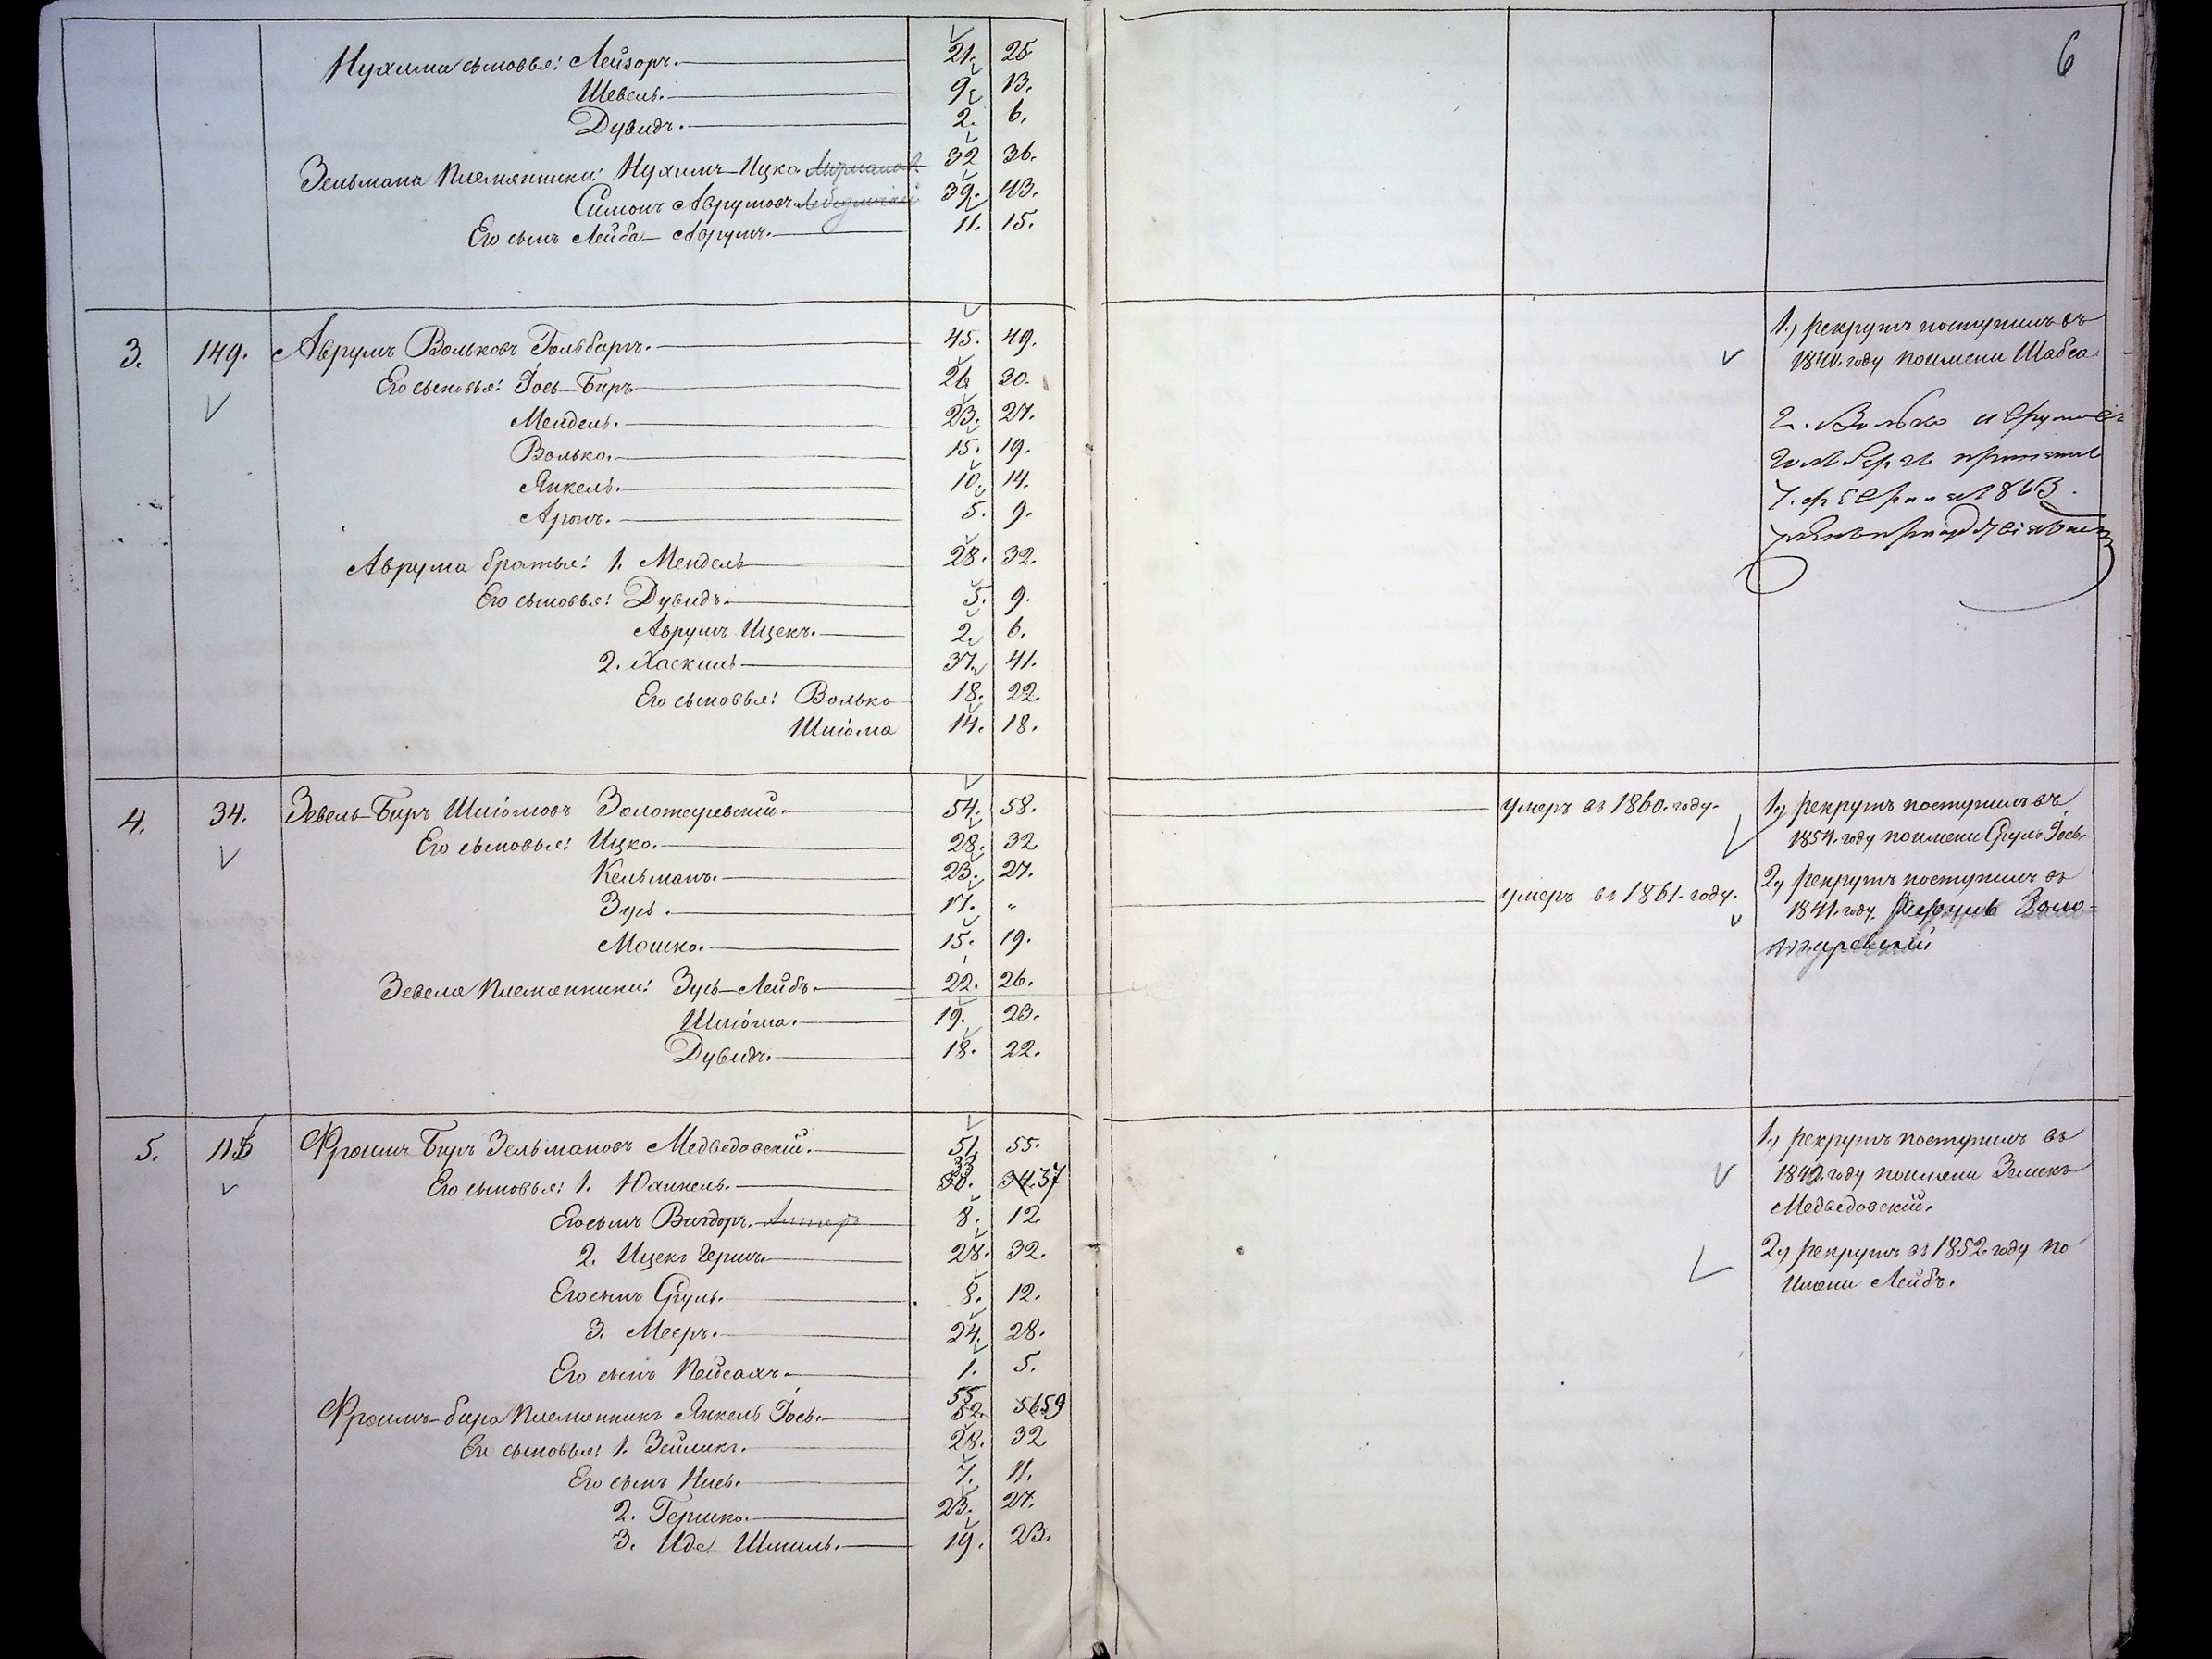 6
Нухима сыновья: Лейзоръ. 21. 25
Шевель. 9. 13.
Дувидъ. 2. 6.
Зельмана племянники: Нухимъ-Ицко 32 36.
Симонъ Аврумовъ 39. 43.
Его сынъ Лейба-Аврумъ. 11. 15.
3. 149. Аврумъ Вольковъ Гольбаръ. 45. 49.
Его сыновья: Іось-Биръ 26 30.
Мендель. 23. 27.
Волько. 15. 19.
Янкель. 10. 14.
Аронъ. 5. 9.
Аврума братья: 1. Мендель 28. 32.
Его сыновья: Дувидъ. 5. 9.
Аврумъ Ицекъ. 2. 6.
2. Хаскиль 37. 41.
Его сыновья: Волько 18. 22.
Шліома 14. 18.
1.) рекрутъ поступилъ въ
году поимени Шабса.
2. Волько
1863.
4. 34. Зевель-Биръ Шліомовъ Золотаревскій. 54. 58. умеръ въ 1860. году.
Его сыновья: Ицко. 28. 32
Кельманъ. 23. 27.
Зусь. 17. „ умеръ въ 1861. году.
Мошко. 15. 19.
Зевеля племянники: Зусь-Лейбъ. 22. 26.
Шліома. 19. 23.
Дувидъ. 18. 22.
1.) рекрутъ поступилъ въ
1854. году поимени Сруль Іось.
2.) рекрутъ поступилъ въ
1841. году Золо-
таревскій
5. Фроимъ Биръ Зельмановъ Медведовскій. 51. 55.
Его сыновья: 1. Юхинель. 33 30. 34. 37
Его сынъ Вигдоръ. 8. 12
2. Ицекъ Гершъ. 28. 32.
Его сынъ Сруль. 8. 12.
3. Мееръ. 24. 28.
Его сынъ Пейсахъ. 1. 5.
Фроимъ-бира племянникъ Янкель Іось. 55 52. 56 59
Его сыновья: 1. Зейликъ. 28. 32
Его сынъ Нись. 7. 11.
2. Гершко. 23. 27.
3. Иде Шмиль. 19. 23.
1.) рекрутъ поступилъ въ
1842. году поимени Земекъ
Медведовскій.
2.) рекрутъ въ 1852. году по
имени Лейбъ.